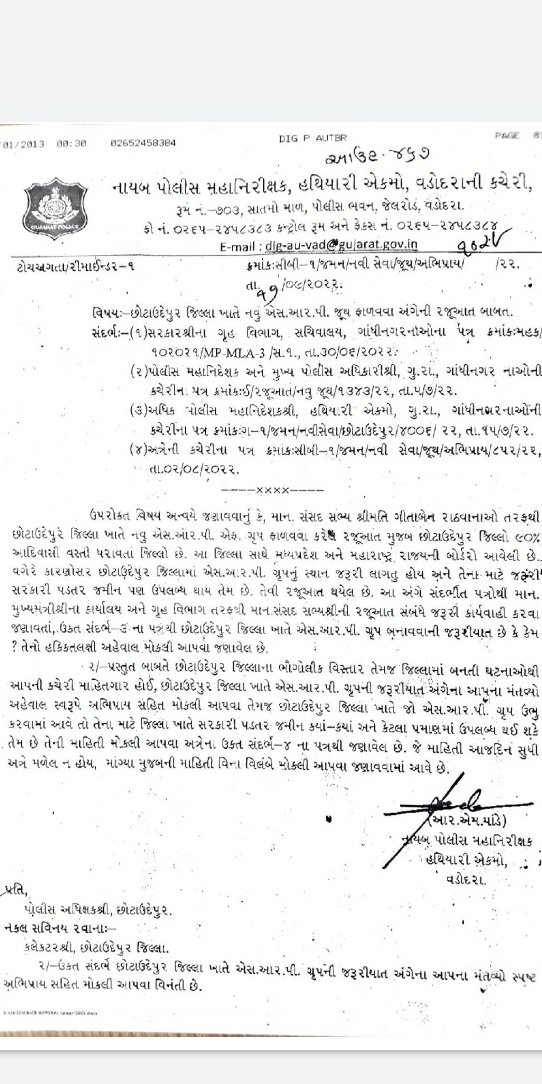 /01/2013 00:30 02652458384 DIG P AUTBR PAGE 01
નાયબ પોલીસ મહાનિરીક્ષક, હથિયારી એકમો, વડોદરાની કચેરી,
GUJARAT POLICE
રૂમ નં.-૭૦૩, સાતમો માળ, પોલીસ ભવન, જેલરોડ, વડોદરા.
ફો નં. ૦૨૬૫-૨૪૫૮૩૮૩ કન્ટ્રોલ રૂમ અને ફેકસ નં. ૦૨૬૫-૨૪૫૮૩૮૪
E-mail : dig-au-vad@gujarat.gov.in
ટોચઅગતા/રીમાઈન્ડર-૧ ક્રમાંક:સીબી-૧/જમન/નવી સેવા/જૂથ/અભિપ્રાય/ /૨૨.
તા. /૦૯/૨૦૨૨.
વિષય:-છોટાઉદેપુર જિલ્લા ખાતે નવુ એસ.આર.પી. જૂથ ફાળવવા અંગેની રજૂઆત બાબત.
સંદર્ભ:-(૧)સરકારશ્રીના ગૃહ વિભાગ, સચિવાલય, ગાંધીનગરનાઓના પત્ર ક્રમાંક:મહક/
૧૦૨૦૨૧/MP-MLA-3 /સ.૧., તા.૩૦/૦૬/૨૦૨૨.
(૨)પોલીસ મહાનિદેશક અને મુખ્ય પોલીસ અધિકારીશ્રી, ગુ.રા., ગાંધીનગર નાઓની
કચેરીન પત્ર ક્રમાંક:ઈ/રજૂઆત/નવુ જૂથ/૧૩૪૩/૨૨, તા.૫/૭/૨૨.
(૩)અધિક પોલીસ મહાનિદેશકશ્રી, હથિયારી એકમો, ગુ.રા., ગાંધીનગરનાઓની
કચેરીના પત્ર ક્રમાંક:ગ-૧/જમન/નવીસેવા/છોટાઉદેપુર/૪૦૦૬/ ૨૨, તા.૧૫/૭/૨૨.
(૪)અત્રેની કચેરીના પત્ર ક્રમાંક:સીબી-૧/જમન/નવી સેવા/જૂથ/અભિપ્રાય/૮૫૨/૨૨,
તા.૦૨/૦૮/૨૦૨૨.
----××××----
ઉપરોકત વિષય અન્વયે જણાવવાનું કે, માન. સંસદ સભ્ય શ્રીમતિ ગીતાબેન રાઠવાનાઓ તરફથી
છોટાઉદેપુર જિલ્લા ખાતે નવુ એસ.આર.પી. એફ. ગ્રૃપ ફાળવવા કરેલ રજૂઆત મુજબ છોટાઉદેપુર જિલ્લો ૯૦%
આદિવાસી વસ્તી ધરાવતાં જિલ્લો છે. આ જિલ્લા સાથે મધ્યપ્રદેશ અને મહારાષ્ટ્ર રાજયની બોર્ડરો આવેલી છે.
વગેરે કારણોસર છોટાઉદેપુર જિલ્લામાં એસ.આર.પી. ગ્રૃપનું સ્થાન જરૂરી લાગતુ હોય અને તેના માટે જરૂરી
સરકારી પડતર જમીન પણ ઉપલબ્ધ થાય તેમ છે. તેવી રજૂઆત થયેલ છે. આ અંગે સંદર્ભીત પત્રોથી માન.
મુખ્યમંત્રીશ્રીના કાર્યાલય અને ગૃહ વિભાગ તરફથી માન.સંસદ સભ્યશ્રીની રજૂઆત સંબંધે જરૂરી કાર્યવાહી કરવા
જણાવતાં, ઉકત સંદર્ભ-૩ ના પત્રથી છોટાઉદેપુર જિલ્લા ખાતે એસ.આર.પી. ગ્રૃપ બનાવવાની જરૂરીયાત છે કે કેમ
? તેનો હકિકતલક્ષી અહેવાલ મોકલી આપવા જણાવેલ છે.
૨/-પ્રસ્તુત બાબતે છોટાઉદેપુર જિલ્લાના ભૌગોલીક વિસ્તાર તેમજ જિલ્લામાં બનતી ઘટનાઓથી
આપની કચેરી માહિતગાર હોઈ, છોટાઉદેપુર જિલ્લા ખાતે એસ.આર.પી. ગ્રૃપની જરૂરીયાત અંગેના આપના મંતવ્યો
અહેવાલ સ્વરૂપે અભિપ્રાય સહિત મોકલી આપવા તેમજ છોટાઉદેપુર જિલ્લા ખાતે જો એસ.આર.પી. ગ્રૃપ ઉભુ
કરવામાં આવે તો તેના માટે જિલ્લા ખાતે સરકારી પડતર જમીન કયાં-કયાં અને કેટલા પ્રમાણમાં ઉપલબ્ધ થઈ શકે
તેમ છે તેની માહિતી મોકલી આપવા અત્રેના ઉકત સંદર્ભ-૪ ના પત્રથી જણાવેલ છે. જે માહિતી આજદિન સુધી
અત્રે મળેલ ન હોય, માંગ્યા મુજબની માહિતી વિના વિલંબે મોકલી આપવા જણાવવામાં આવે છે.
(આર.એમ.પાંડે)
નાયબ પોલીસ મહાનિરીક્ષક
હથિયારી એકમો,
વડોદરા.
પ્રતિ,
પોલીસ અધિક્ષકશ્રી, છોટાઉદેપુર.
નકલ સવિનય રવાના:-
કલેકટરશ્રી, છોટાઉદેપુર જિલ્લા.
૨/-ઉકત સંદર્ભે છોટાઉદેપુર જિલ્લા ખાતે એસ.આર.પી. ગ્રૃપની જરૂરીયાત અંગેના આપના મંતવ્યો સ્પષ્ટ
અભિપ્રાય સહિત મોકલી આપવા વિનંતી છે.